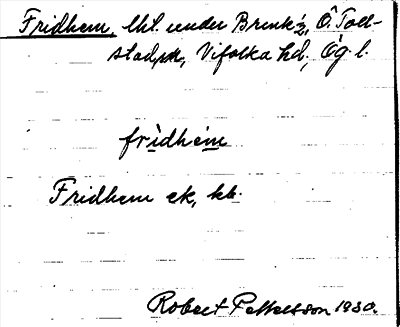 Fridhem, lht. under Brink 1/2, Ö. Toll-
stad sn, Vifolka hd, Ög. l.
fridhem
Fridhem ek, kb.
Robert Pettersson 1930.